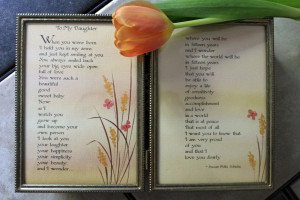 To My Daughter
When you were born
I held you in my arms
and just kept smiling at you
You always smiled back
your big eyes wide open
full of love
You were such a
beautiful
good
sweet baby
Now
as I
watch you
grow up
and become your
own person
I look at you
your laughter
your happiness
your simplicity
your beauty
and I wonder
where you will be
in fifteen years
and I wonder
where the world will be
in fifteen years
I just hope
that you will
be able to
enjoy a life
of sensitivity
goodness
accomplishment
and love
in a world
that is at peace
But most of all
I want you to know that
I am very proud
of you
and that I
love you dearly